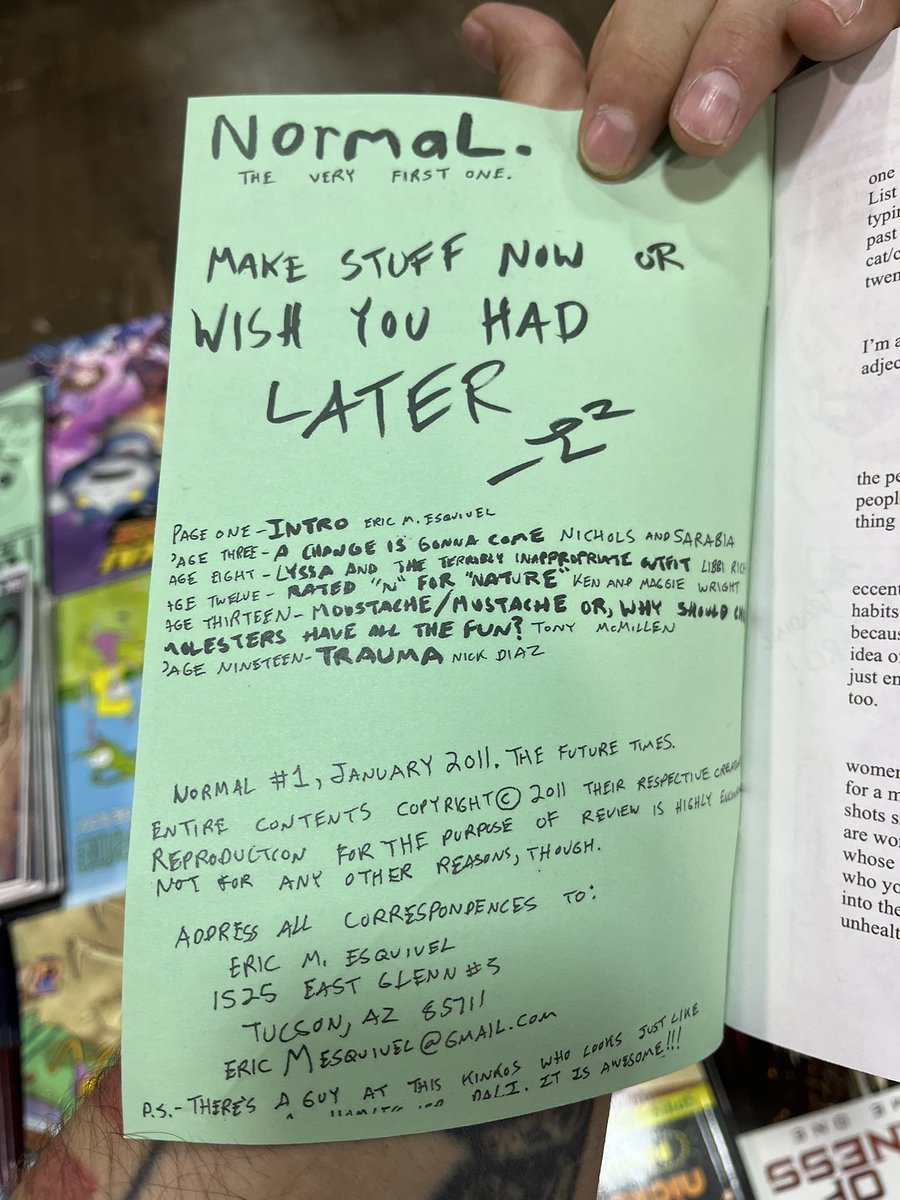 NormaL.
THE VERY FIRST ONE.
MAKE STUFF NOW OR
WISH YOU HAD
LATER
PAGE ONE-INTRO ERIC M. ESQUIVEL
'AGE THREE- A CHANGE IS GONNA COME NICHOLS AND SARABIA
AGE EIGHT- LYSSA AND THE TERRIBLY INAPPROPRIATE OUTFIT LIBBI RICH
AGE TWELVE- RATED "N" FOR "NATURE" KEN AND MAGGIE WRIGHT
AGE THIRTEEN- MOUSTACHE/MUSTACHE OR, WHY SHOULD
MOLESTERS HAVE ALL THE FUN? TONY McMILLEN
'AGE NINETEEN- TRAUMA NICK DIAZ
NORMAL #1, JANUARY 2011. THE FUTURE TIMES.
ENTIRE CONTENTS COPYRIGHT © 2011 THEIR RESPECTIVE
REPRODUCTION FOR THE PURPOSE OF REVIEW IS HIGHLY
NOT FOR ANY OTHER REASONS, THOUGH.
ADDRESS ALL CORRESPONDENCES TO:
ERIC M. ESQUIVEL
1525 EAST GLENN #5
TUCSON, AZ 85711
ERICMESQUIVEL@GMAIL.COM
P.S.- THERE'S A GUY AT THIS KINKOS WHO LOOKS JUST LIKE
A DALI. IT IS AWESOME!!!
one
List
typin
past
cat/c
twen
I'm a
adjec
the pe
people
thing
eccent
habits
becaus
idea of
just en
too.
women
for a m
shots s
are wo
whose
who yo
into the
unhealt
OF
NESS